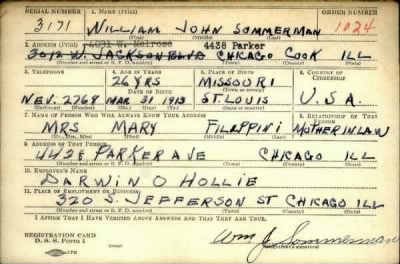 SERIAL NUMBER 1. NAME (Print) ORDER NUMBER
3171 WILLIAM JOHN SOMMERMAN 1024
2. ADDRESS (Print) 4031 W. Melrose 4438 Parker
3012 W. JACKSON BLVD CHICAGO COOK ILL
(Number and street or R. F. D. number) (Town) (County) (State)
3. TELEPHONE 4. AGE IN YEARS 5. PLACE OF BIRTH 6. COUNTRY OF CITIZENSHIP
26 YRS MISSOURI
DATE OF BIRTH
NEV. 2268 MAR 31 1913 ST. LOUIS U.S.A.
(Exchange) (Number) (Mo.) (Day) (Yr.) (State or country)
7. NAME OF PERSON WHO WILL ALWAYS KNOW YOUR ADDRESS 8. RELATIONSHIP OF THAT PERSON
MRS MARY FILIPPINI MOTHER IN LAW
(Mr., Mrs., Miss) (First) (Middle) (Last)
9. ADDRESS OF THAT PERSON
4438 PARKER AVE CHICAGO ILL
(Number and street or R. F. D. number) (Town) (County) (State)
10. EMPLOYER'S NAME
DARWIN O HOLLIE
11. PLACE OF EMPLOYMENT OR BUSINESS
320 S. JEFFERSON ST CHICAGO ILL
(Number and street or R. F. D. number) (Town) (County) (State)
I AFFIRM THAT I HAVE VERIFIED ABOVE ANSWERS AND THAT THEY ARE TRUE.
REGISTRATION CARD
D. S. S. Form 1 Wm J. Sommerman
(Registrant's signature)